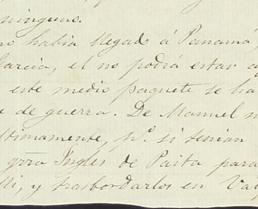 ninguno.
no había llegado á Panamá,
García, el no podrá estar a
este medio paquete se ha
e de guerra. De Manuel n
timamente, pr. si serían
giro Inglés de Paita para
lli, y trasbordarlos en Va